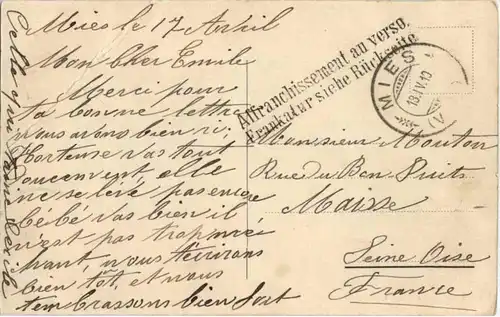 Mies le 17 Avril
Mon Cher Emile
Merci pour
ta bonne lettre
nous avons bien ri,
Hortense vas tout
doucement, elle
ne se lève pas encore
Bébé vas bien il
n'est pas trop mé
chant, nous t'écrirons
bien tôt, et nous
t'embrassons bien fort
Celle qui t'aime
Affranchissement au verso.
Frankatur siehe Rückseite
MIES
18.IV.10
(V
Monsieur Mouton
Rue du Bon Puits
Maisse
Seine Oise
France